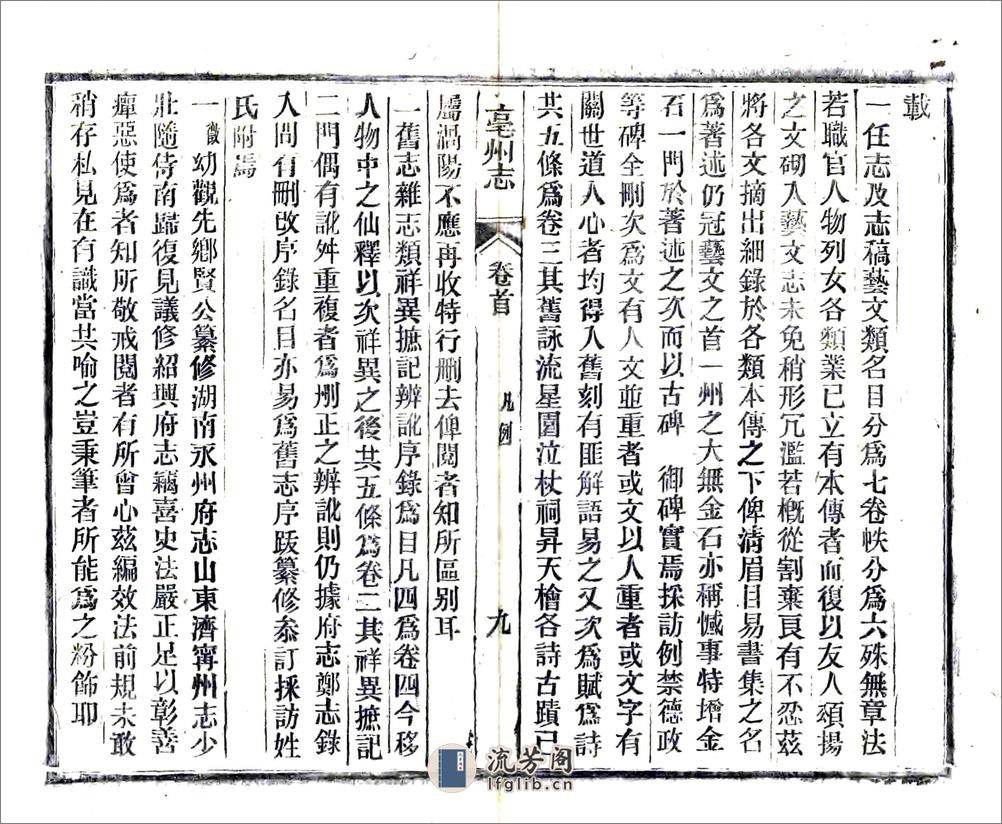 載
一任志及志稿藝文類名目分爲七卷帙分爲六殊無章法
若職官人物列女各類業已立有本傳者而復以友人頌揚
之文砌入藝文志未免稍形冗濫若概從割棄良有不忍茲
將各文摘出細錄於各類本傳之下俾清眉目易書集之名
爲著述仍冠藝文之首一州之大無金石亦稱憾事特增金
石一門於著述之次而以古碑 御碑實焉採訪例禁德政
等碑全刪次爲文有人文並重者或文以人重者或文字有
關世道人心者均得入舊刻有匪解語易之又次爲賦爲詩
共五條爲卷三其舊詠流星園泣杖祠昇天檜各詩古蹟已
亳州志
卷首
凡例
九
屬渦陽不應再收特行刪去俾閱者知所區别耳
一舊志雜志類祥異摭記辨訛序錄爲目凡四爲卷四今移
人物中之仙釋以次祥異之後共五條爲卷二其祥異摭記
二門偶有訛舛重複者爲刪正之辨訛則仍據府志鄭志錄
入間有刪改序錄名目亦易爲舊志序跋纂修叅訂採訪姓
氏附焉
一 幼觀先鄉賢公纂修湖南永州府志山東濟寧州志少
壯隨侍南歸復見議修紹興府志竊喜史法嚴正足以彰善
癉惡使爲者知所敬戒閱者有所會心茲編效法前規未敢
稍存私見在有識當共喻之豈秉筆者所能爲之粉飾耶
流芳阁
lfglib.cn